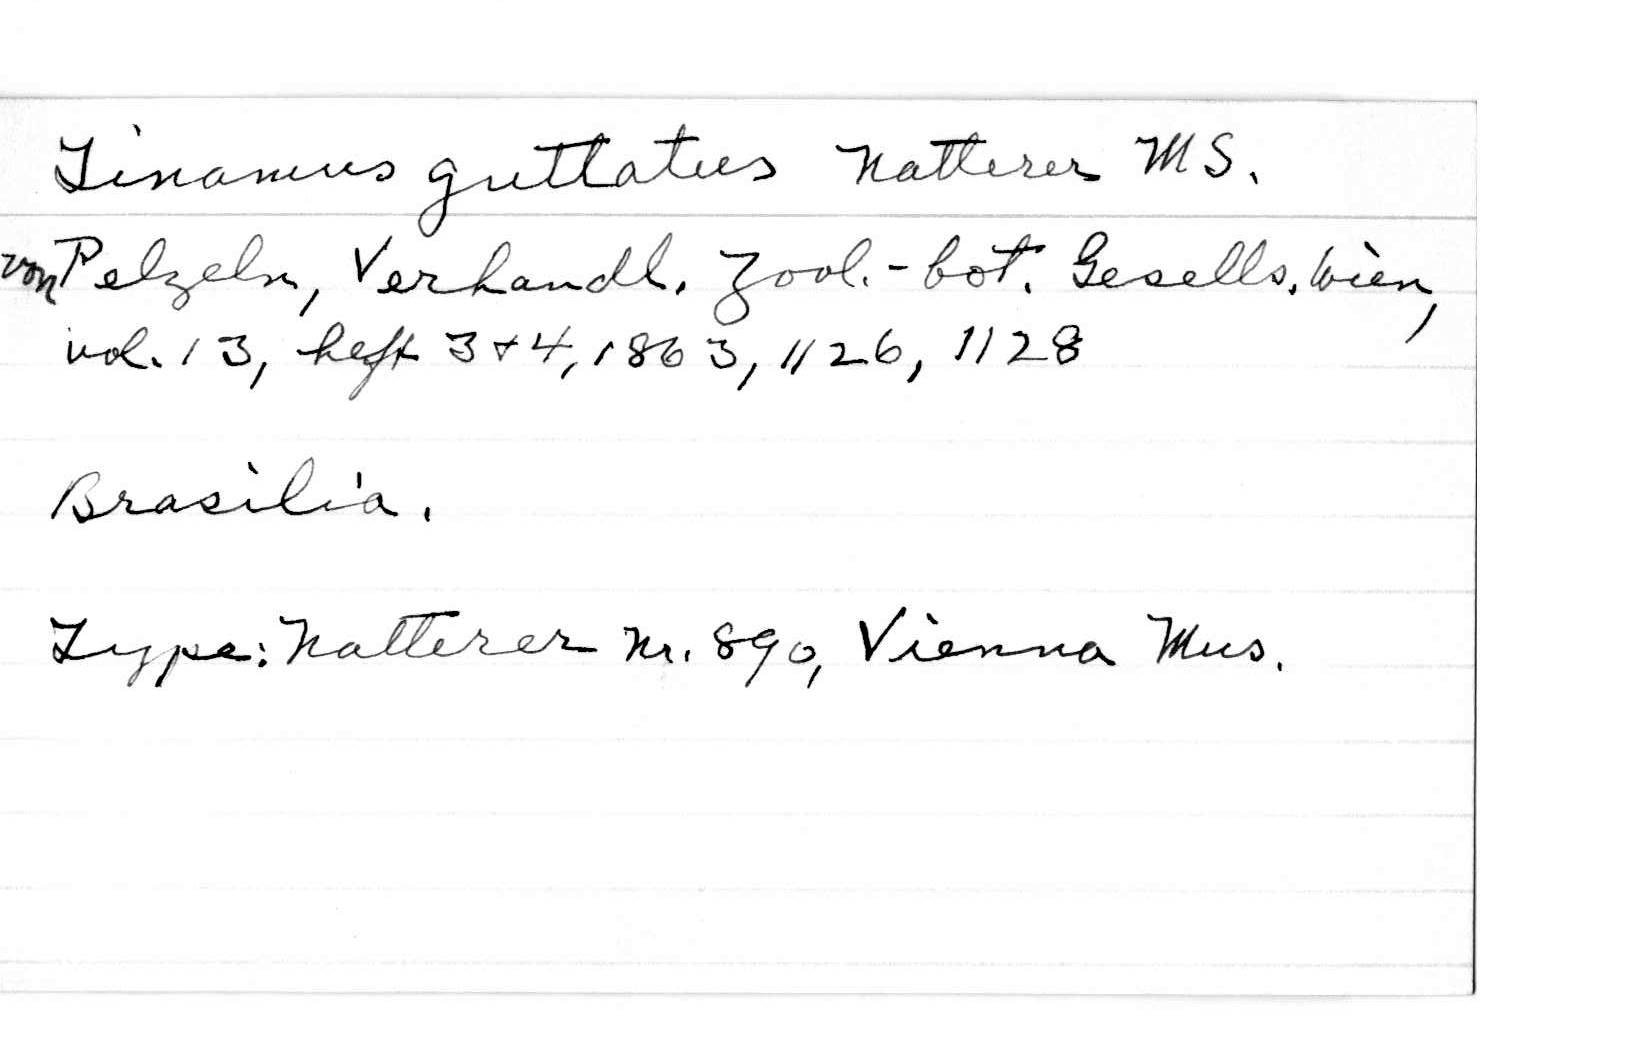 Tinamus guttatus Natterer MS.
von Pelzeln, Verhandl. Zool.-bot. Gesells. Wien,
vol. 13, heft 3+4, 1863, 1126, 1128
Brasilia.
Type: Natterer Nr. 890, Vienna Mus.